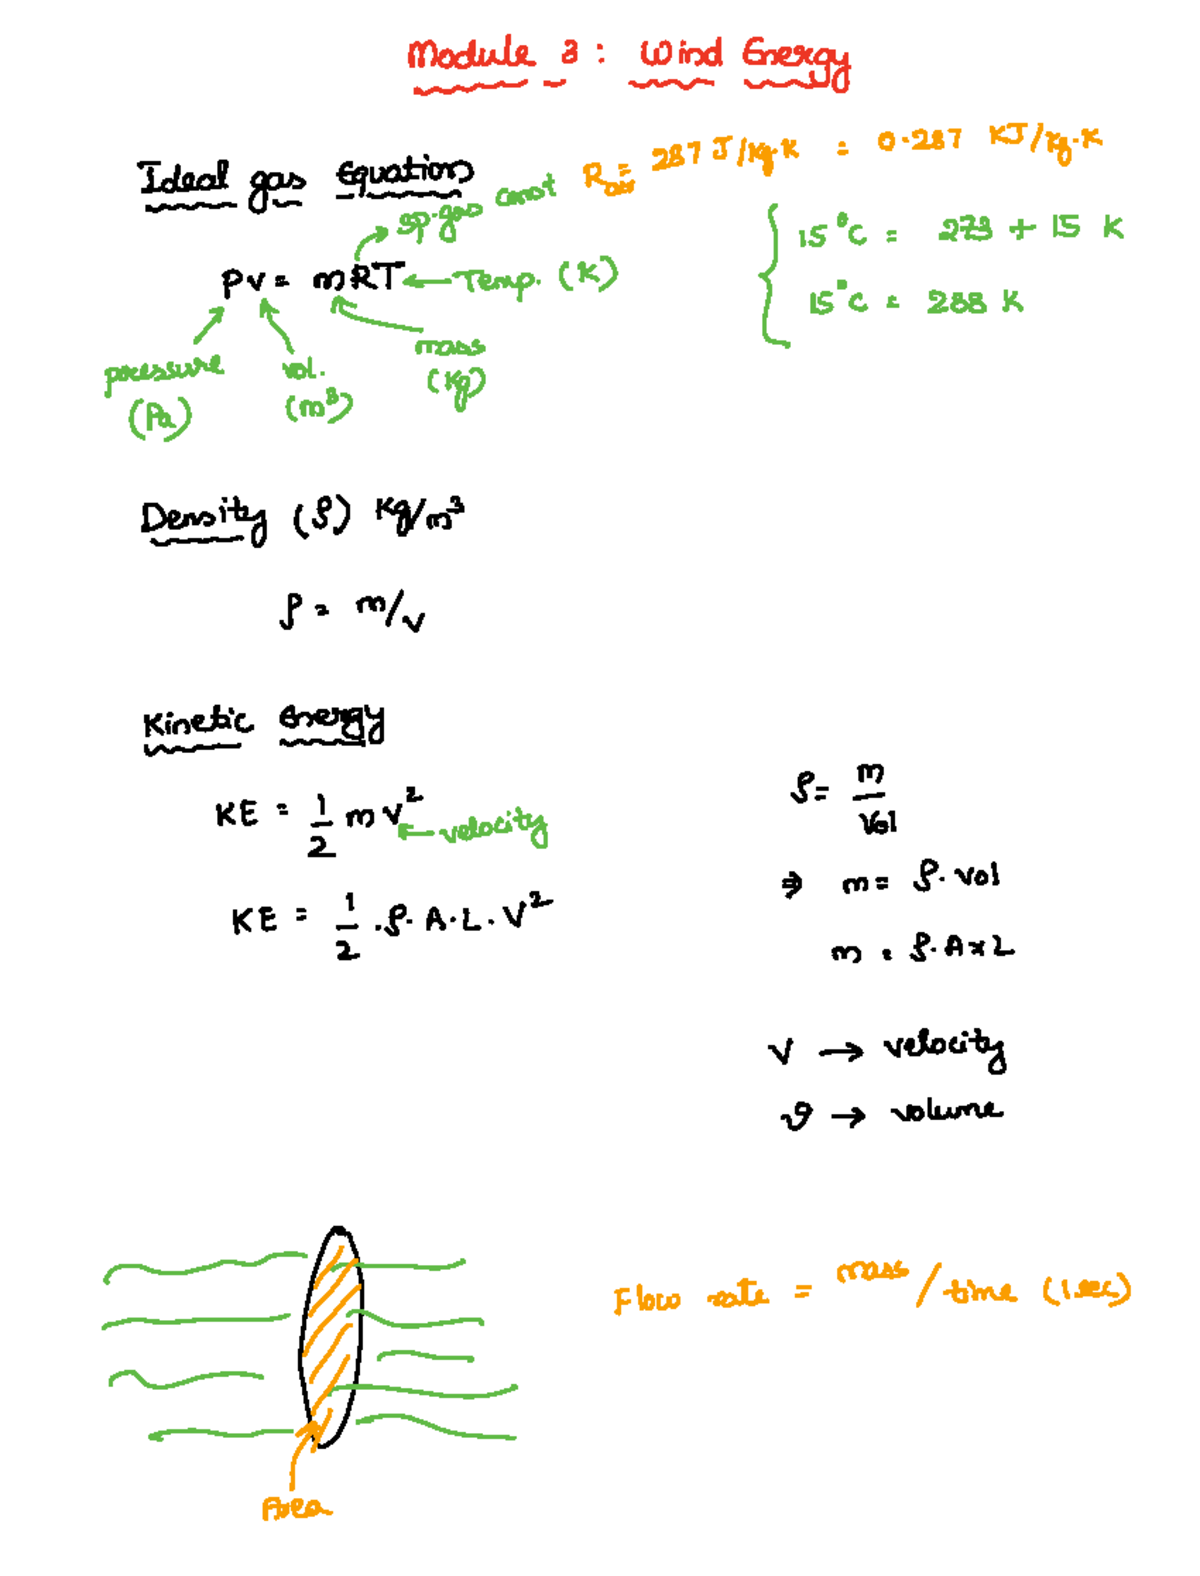 Module 3 : Wind Energy
Ideal gas Equation
R air = 287 J/kg.K = 0.287 KJ/kg.K
sp.gas const
15°C = 273 + 15 K
15°C = 288 K
PV = mRT ← Temp. (K)
pressure
(Pa)
vol.
(m³)
mass
(Kg)
Density (ρ) Kg/m³
ρ = m/v
Kinetic Energy
KE = 1/2 m v² ← velocity
KE = 1/2 . ρ. A. L. V²
ρ = m/Vol
⇒ m = ρ. Vol
m = ρ. A x L
V → velocity
ϑ → volume
Flow rate = mass / time (1 sec)
Area